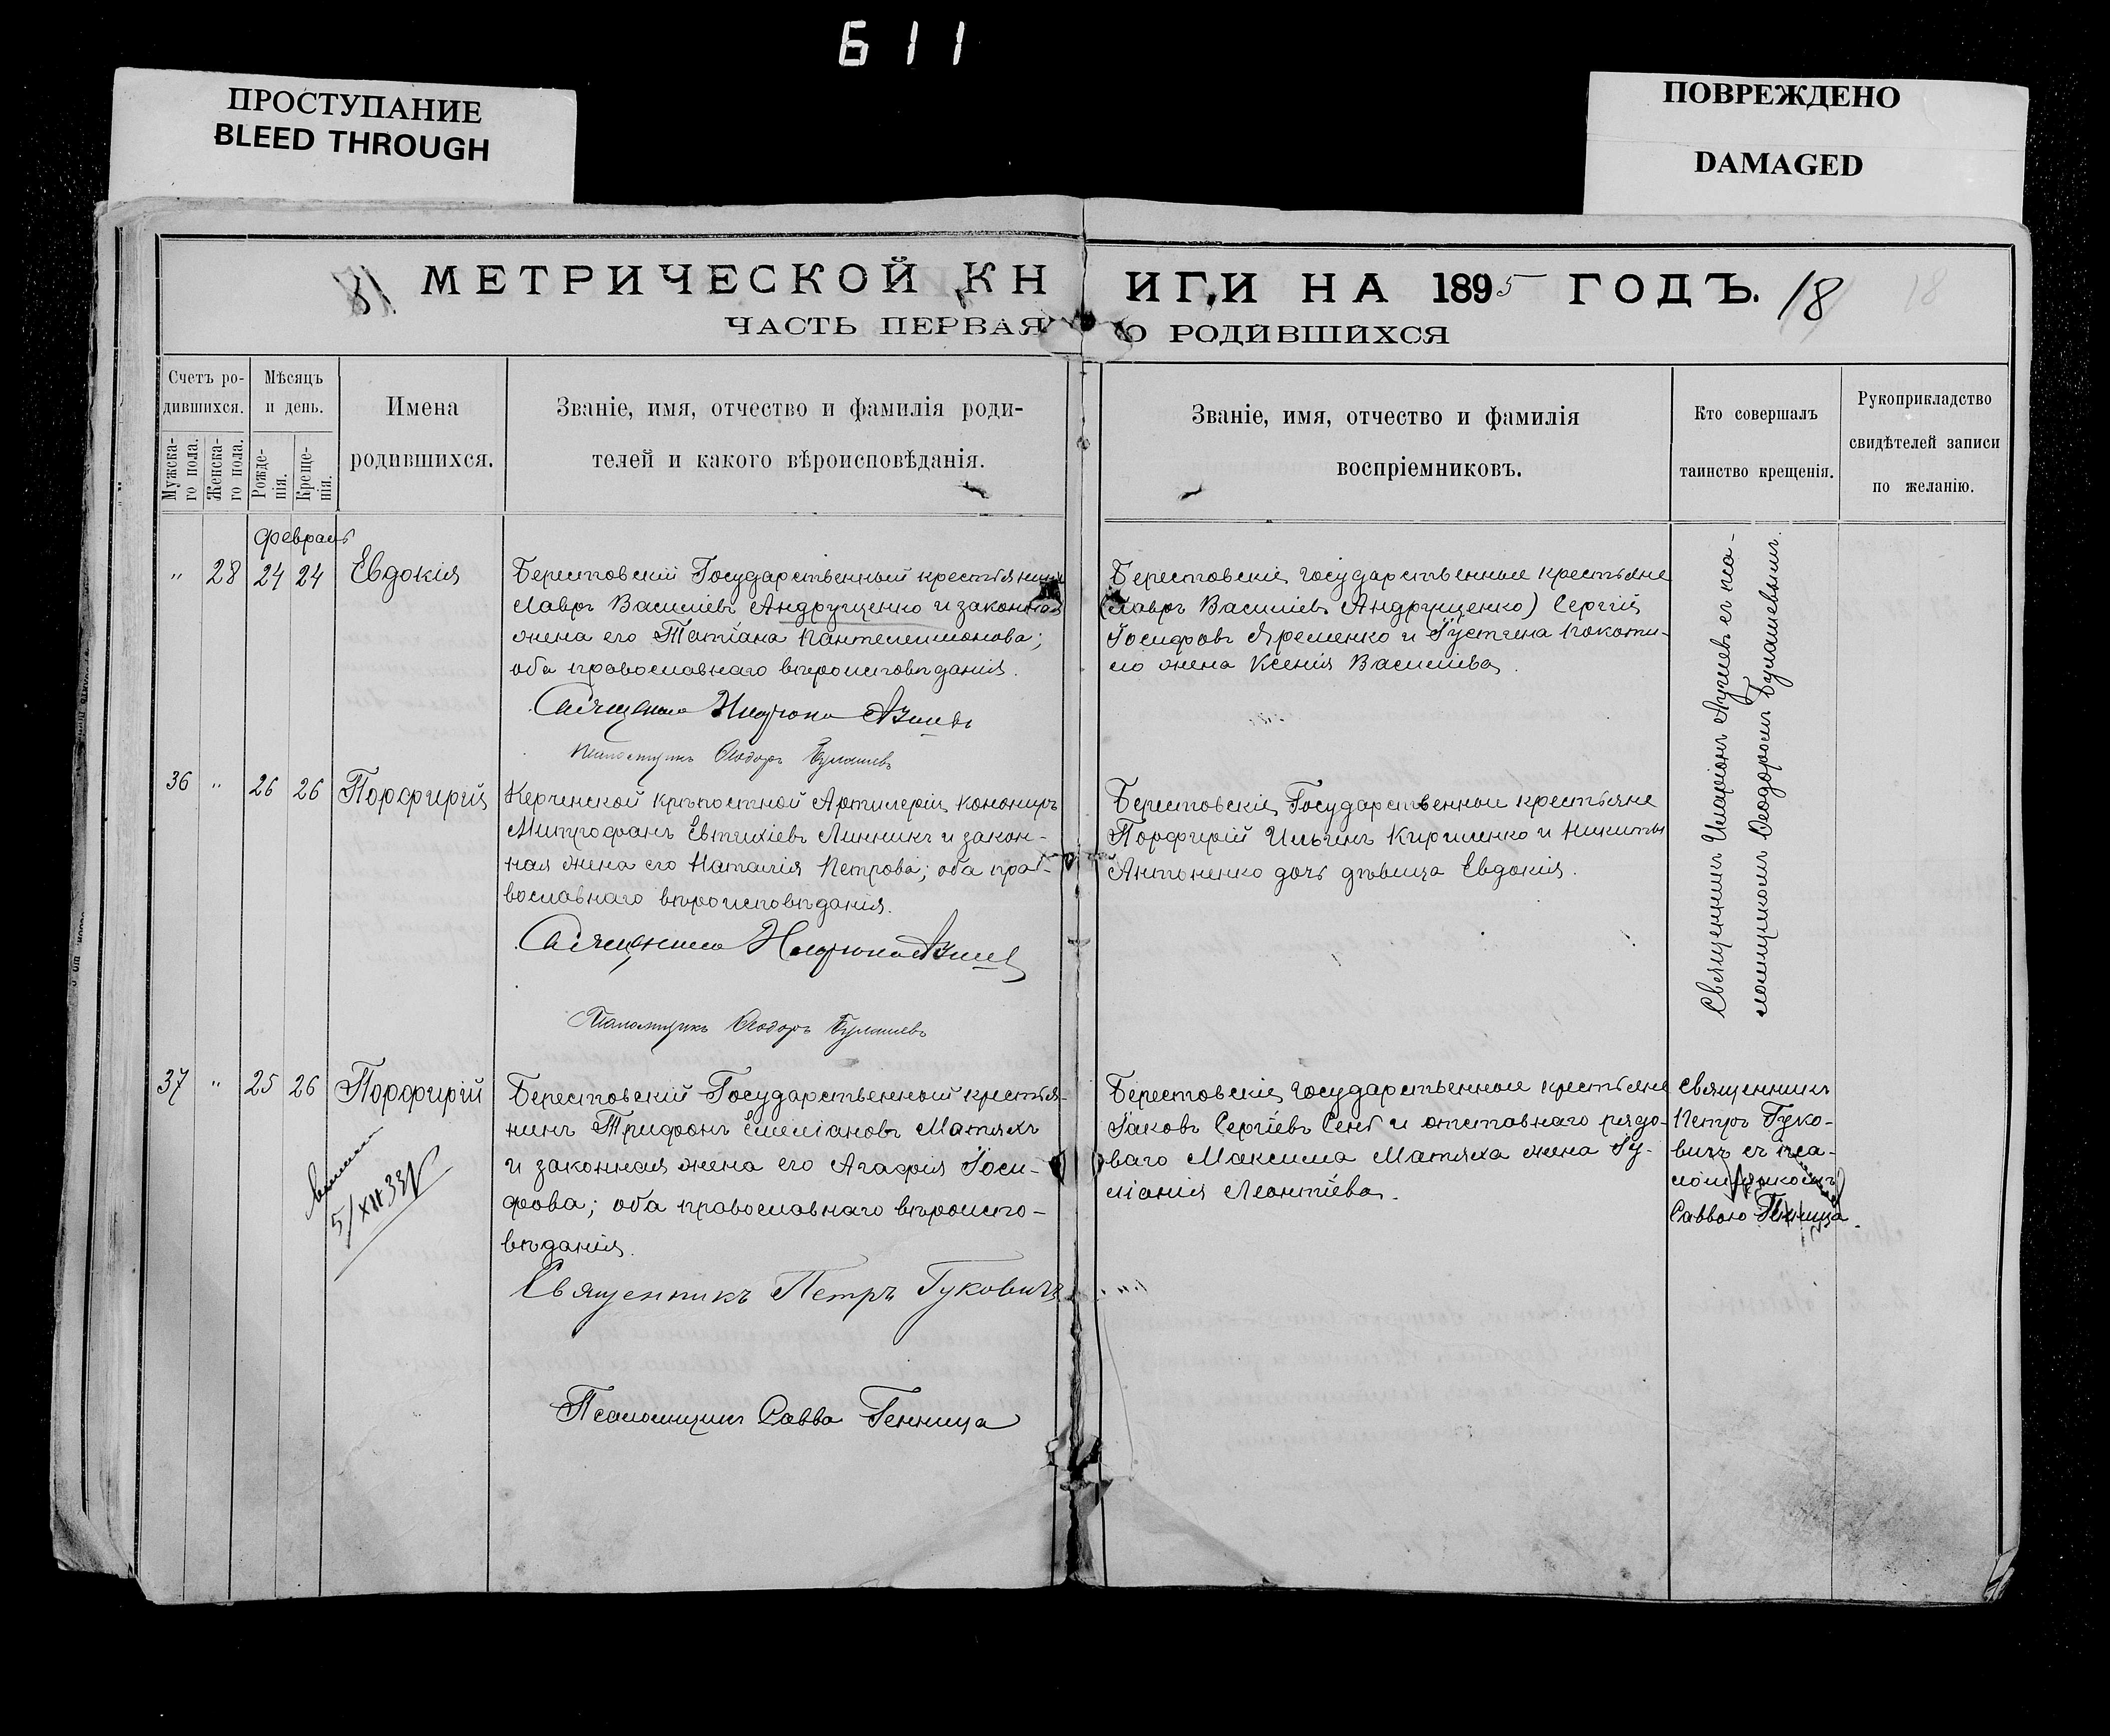 611
ПРОСТУПАНИЕ
BLEED THROUGH
ПОВРЕЖДЕНО
DAMAGED
МЕТРИЧЕСКОЙ КНИГИ НА 1895 ГОДЪ. 18
ЧАСТЬ ПЕРВАЯ О РОДИВШИХСЯ
Счетъ ро-
дившихся.
Мужска-
го пола.
Женска-
го пола.
Мѣсяцъ
и день.
Рожде-
нія.
Креще-
нія.
Имена
родившихся.
Званіе, имя, отчество и фамилія роди-
телей и какого вѣроисповѣданія.
Званіе, имя, отчество и фамилія
воспріемниковъ.
Кто совершалъ
таинство крещенія.
Рукоприкладство
свидѣтелей записи
по желанію.
Февраль
" 28 24 24 Евдокія
Берестовскій Государственный крестьянинъ
Лавръ Василіевъ Андрущенко и законная
жена его Татіана Пантелеимонова;
оба православнаго вѣроисповѣданія.
Священникъ Иларіонъ
Псаломщикъ Ѳеодоръ Булашевъ
Берестовскіе государственные крестьяне
(Лавръ Василіевъ Андрущенко) Сергій
Іосифовъ Яременко и Іустина Кокоти-
ло жена Ксенія Василіева.
Священникъ Иларіонъ съ пса-
ломщикомъ Ѳеодоромъ Булашевымъ.
36 " 26 26 Порфирій
Керченской крѣпостной Артилеріи канониръ
Митрофанъ Евтихіевъ Линникъ и закон-
ная жена его Наталія Петрова; оба пра-
вославнаго вѣроисповѣданія.
Священникъ Иларіонъ
Псаломщикъ Ѳеодоръ Булашевъ
Берестовскіе Государственные крестьяне
Порфирій Ильинъ Кириленко и Никиты
Антоненко дочь дѣвица Евдокія.
37 " 25 26 Порфирій
5/XII 33
Берестовскій Государственный крестья-
нинъ Трифонъ Емеліановъ Матяхъ
и законная жена его Агафія Іоси-
фова; оба православнаго вѣроиспо-
вѣданія.
Священникъ Петръ Гуковичъ
Псаломщикъ Савва Генница
Берестовскіе государственные крестьяне
Іаковъ Сергіевъ и отставнаго рядо-
ваго Максима Матяха жена Іу-
ліанія Леонтіева.
Священникъ
Петръ Гуко-
вичъ съ пса-
ломщикомъ
Саввою